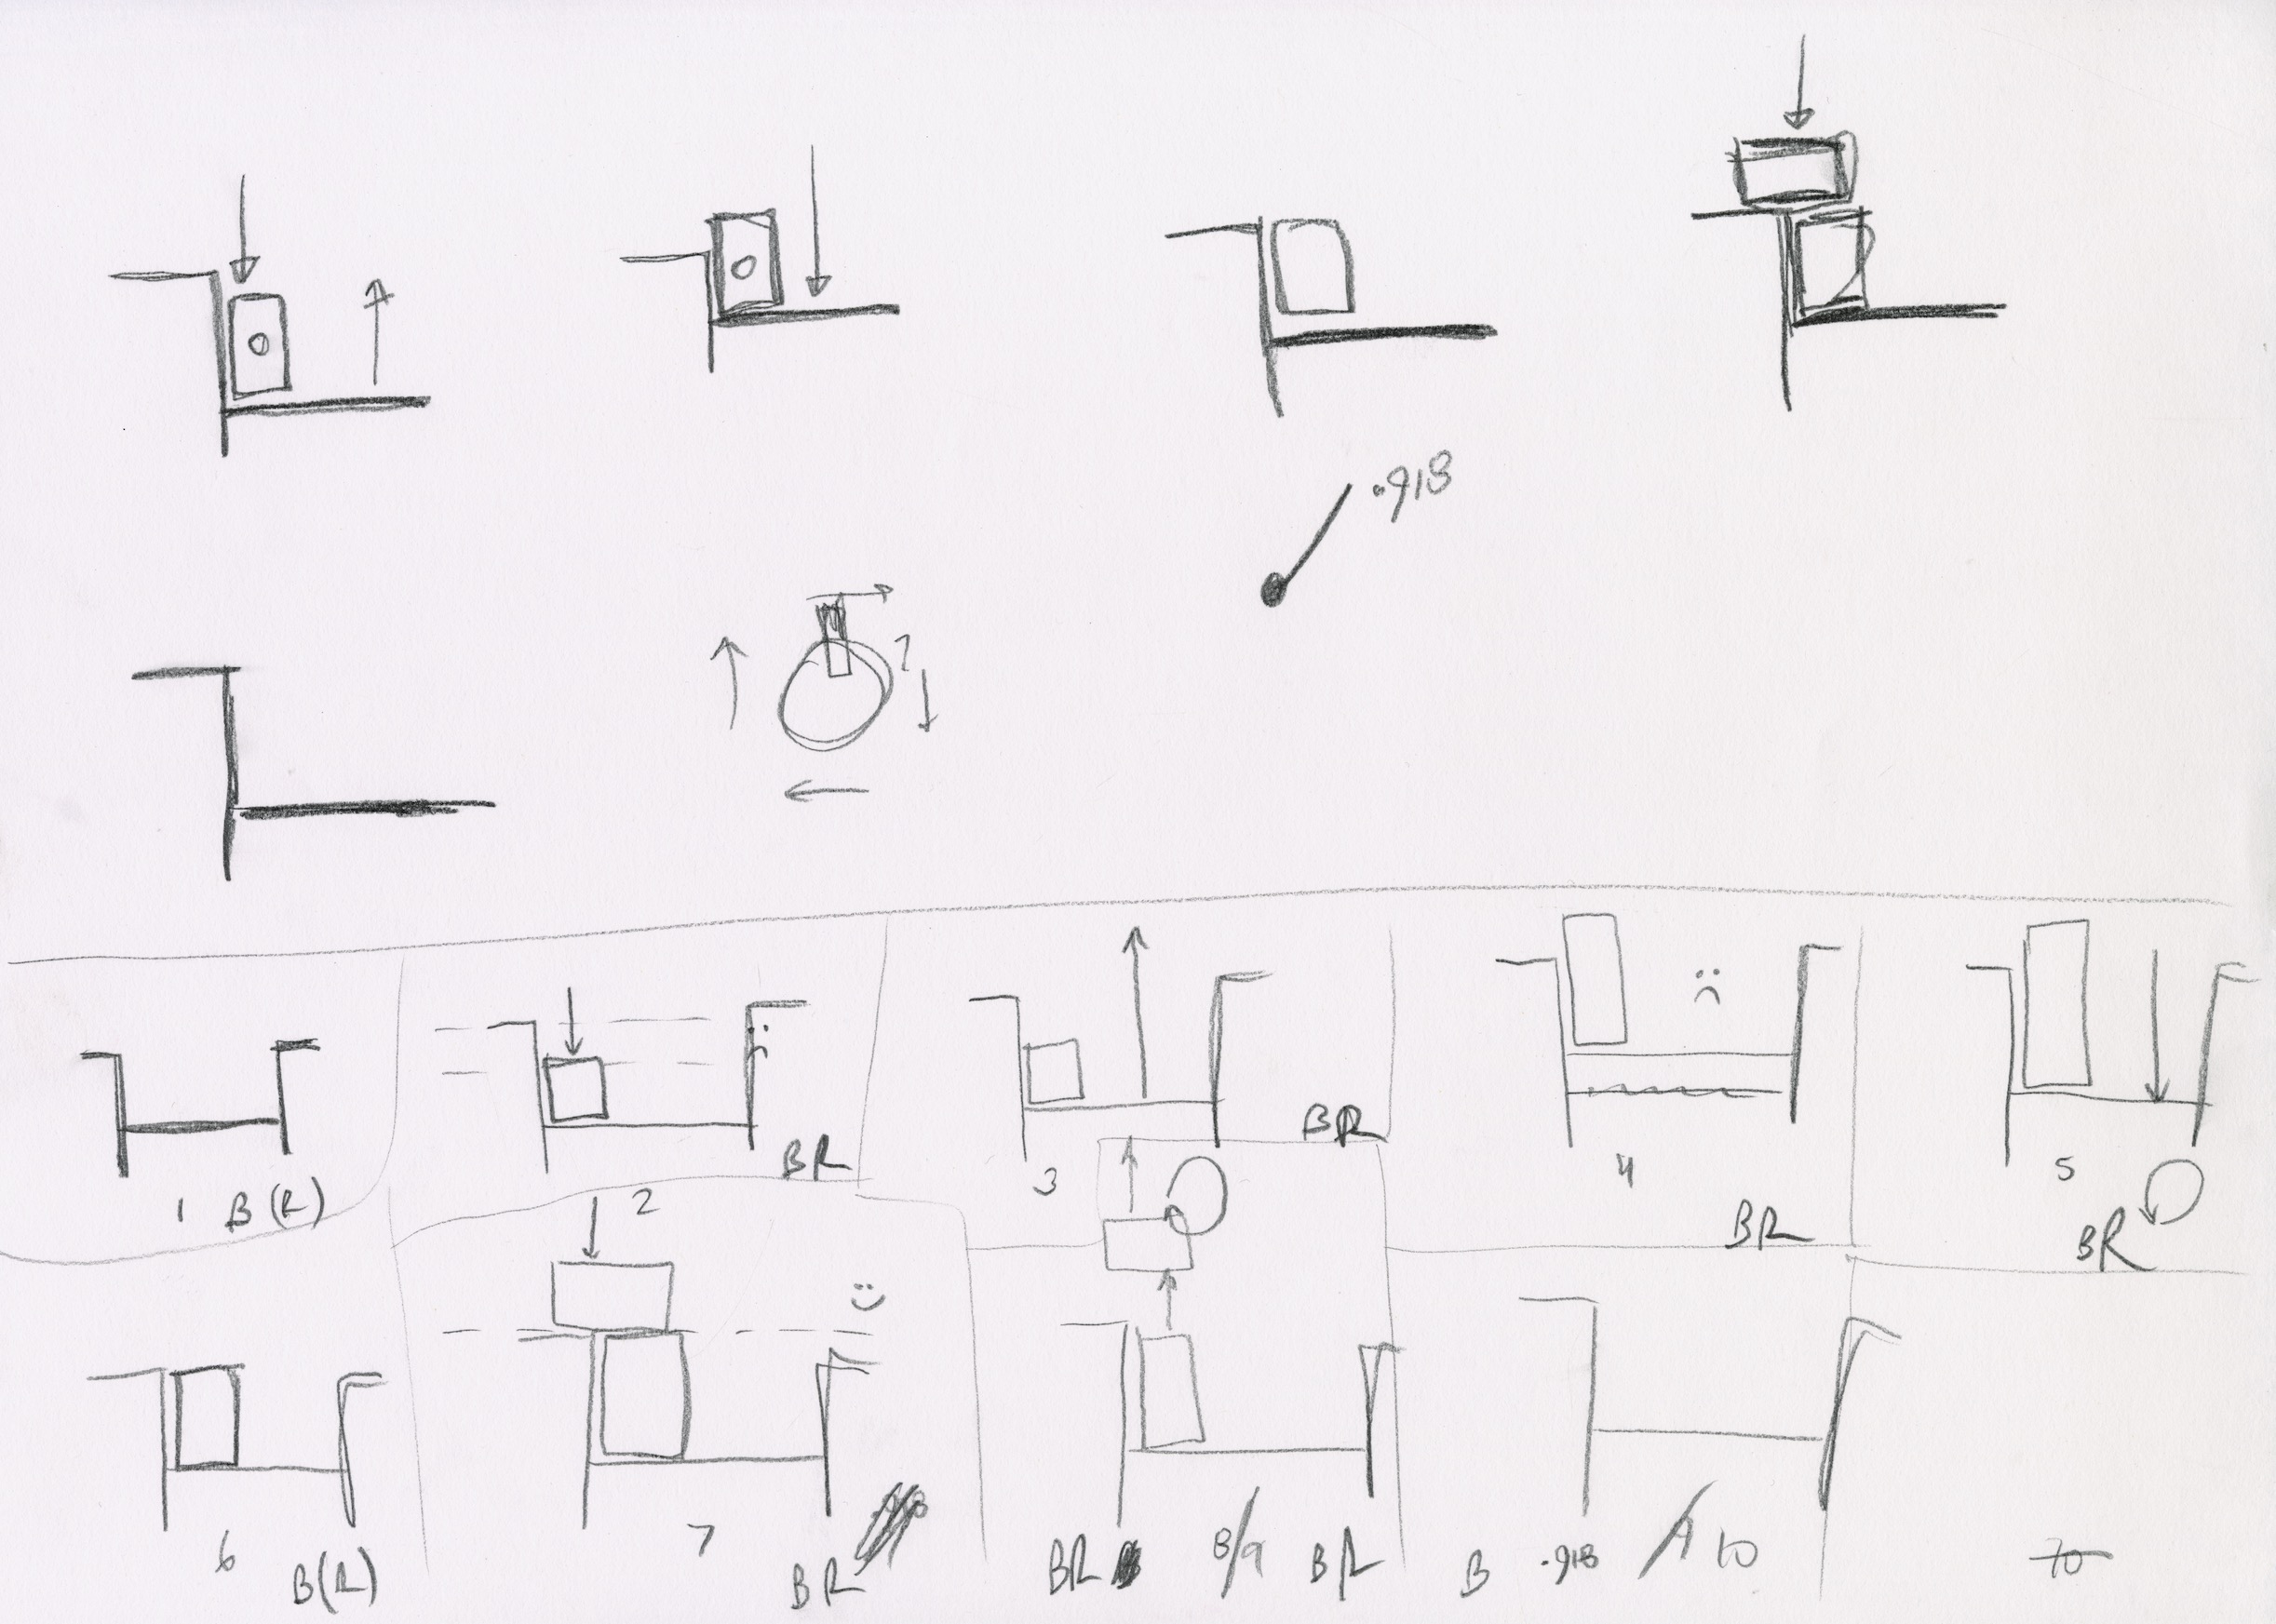 .918
?
1 B (R)
2 BR
3 BR
4 BR
5 BR
6 B(R)
7 BR
BR 8/9 BR
B .918 10
70